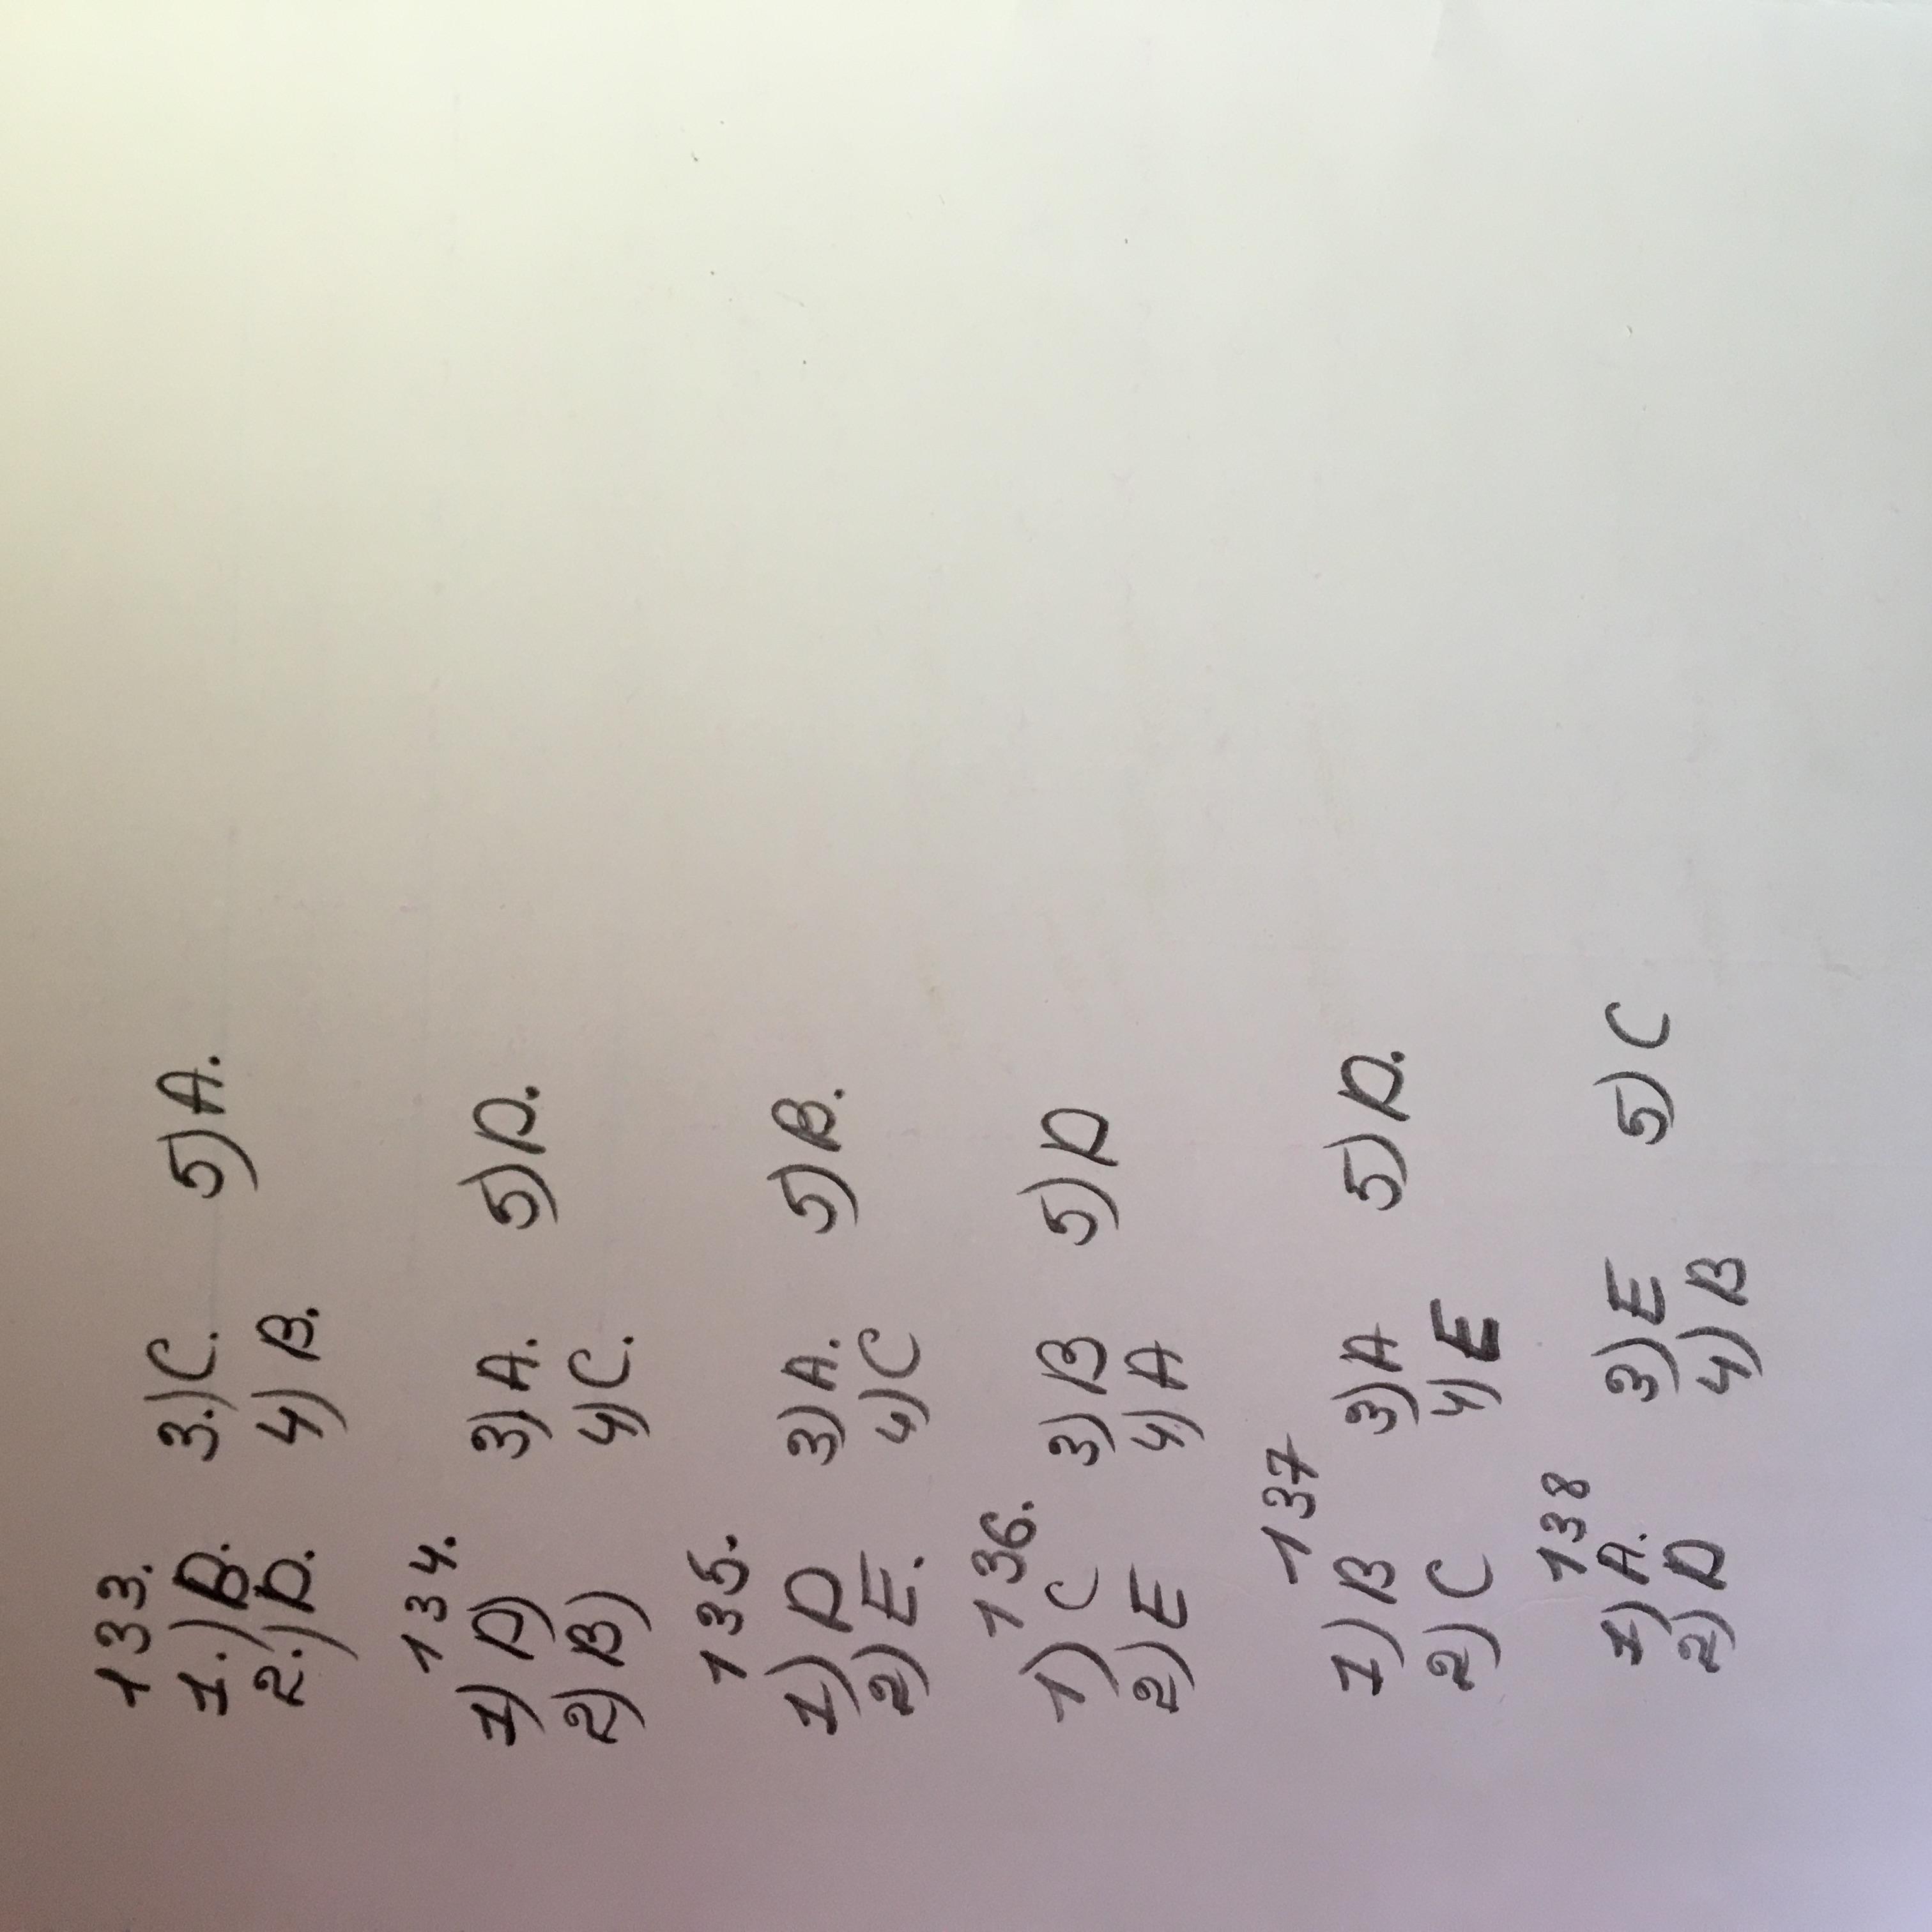 133.
1.) 3.) C. 5) A.
2.) D. 4) B.
134.
1) D) 3) A. 5) D.
2) B) 4) C.
135.
1) D 3) A. 5) B.
2) E. 4) C
136.
1) C 3) B 5) D
2) E 4) A
137
1) B 3) A 5) D.
2) C 4) E
138
1) A. 3) E 5) C
2) D 4) B